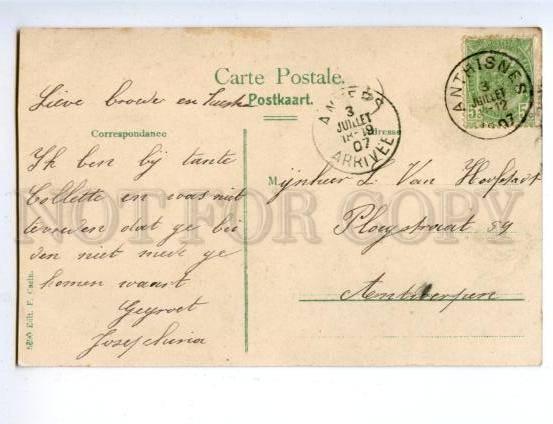 Carte Postale.
Postkaart.
Lieve broeder en Zuster
Correspondance
Adresse
Ik ben bij tante
Collette en was niet
tevreden dat ge bei
den niet mede ge
komen waart
Gegroet
Josephina
Mijnheer L. Van
Ploegstraat 59
Antwerpen
ANTHISNES
3
JUILLET
12
07
ANVERS
3
JUILLET
18-19
07
ARRIVÉE
5
5
Edit. F.
NOT FOR COPY